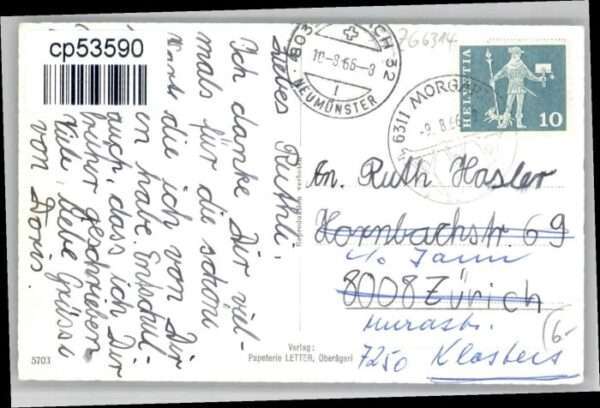 cp53590
Liebes Ruthli.
Ich danke Dir viel-
mals für die schöne
Karte die ich von Dir
in habe. Entschul
auch, dass ich Dir
früher geschrieben
Viele liebe Grüsse
von Doris.
5703
Verlag:
Papeterie LETTER, Oberägeri
8032 ZÜRICH 32
10-8.66-8
1
NEUMÜNSTER
766314
6311 MORGAR
-9.8.66
HELVETIA
10
An. Ruth Hasler
Hornbachstr. 69
c/o Jann
8008 Zürich
Murastr.
7250 Klosters
6.-